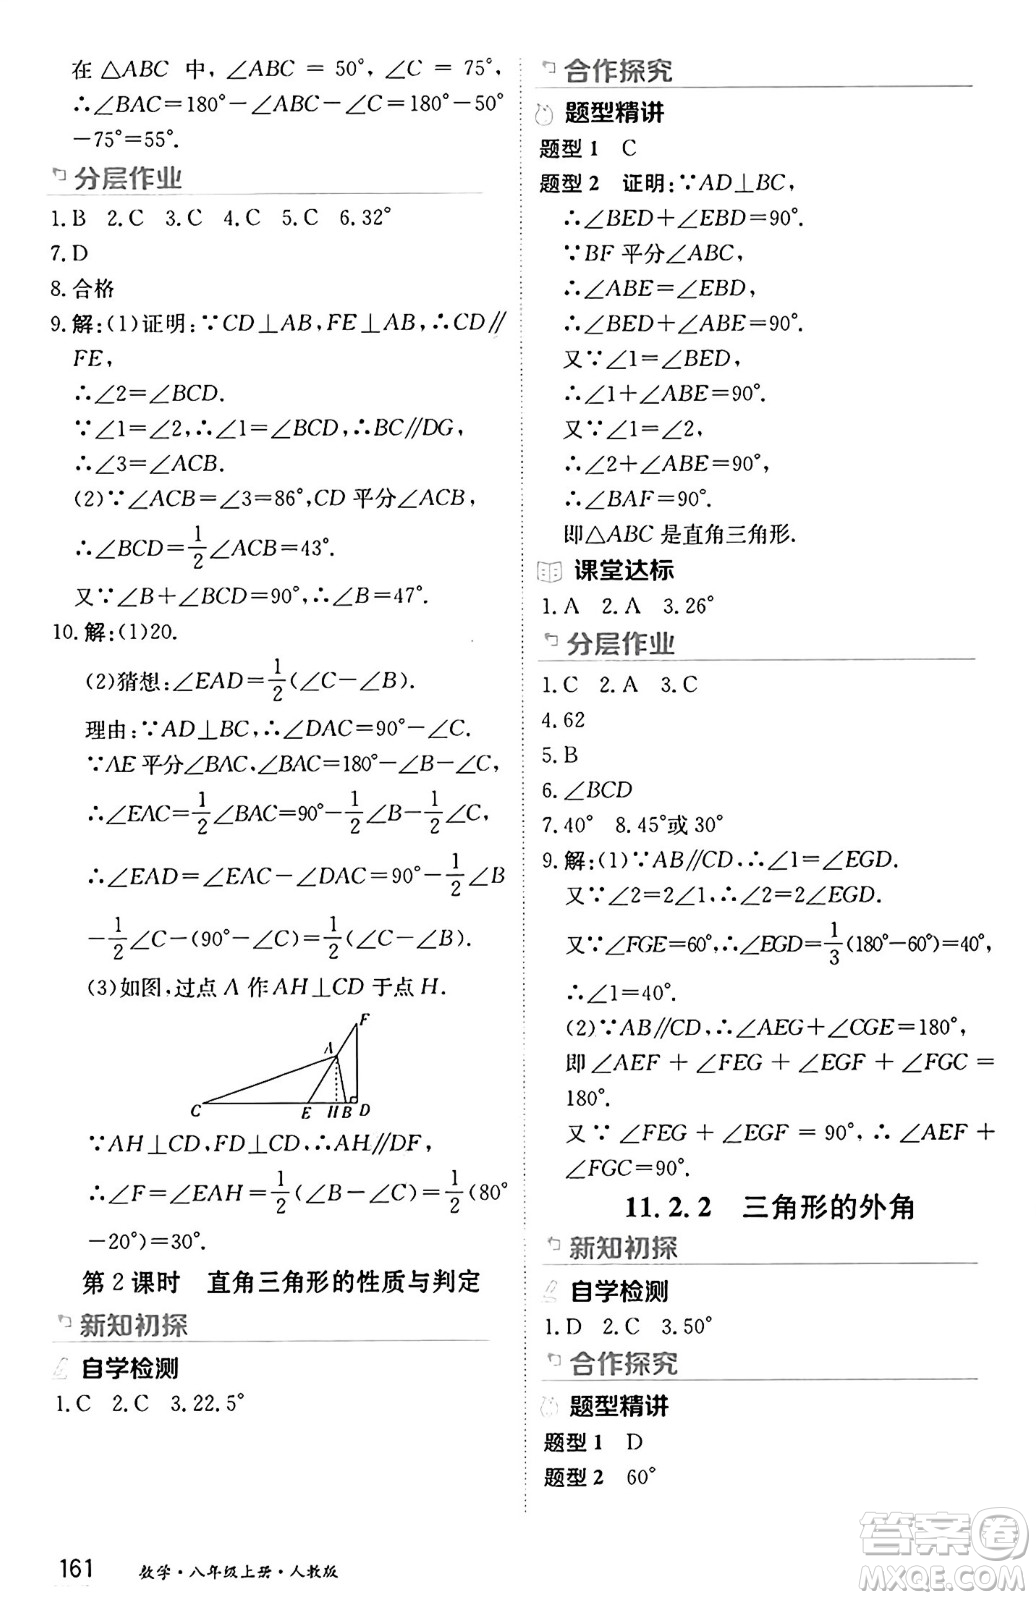 在 △ABC 中, ∠ABC = 50°, ∠C = 75°,
∴∠BAC=180°－∠ABC－∠C=180°－50°
－75°=55°.
分层作业
1.B 2.C 3.C 4.C 5.C 6.32°
7.D
8.合格
9.解:(1)证明:∵CD⊥AB,FE⊥AB,∴CD∥
FE,
∴∠2=∠BCD.
∵∠1=∠2,∴∠1=∠BCD,∴BC∥DG,
∴∠3=∠ACB.
(2)∵∠ACB=∠3=86°,CD 平分∠ACB,
∴∠BCD=1/2∠ACB=43°.
又∵∠B+∠BCD=90°,∴∠B=47°.
10.解:(1)20.
(2)猜想:∠EAD=1/2(∠C－∠B).
理由:∵AD⊥BC,∴∠DAC=90°－∠C.
∵AE平分∠BAC,∠BAC=180°－∠B－∠C,
∴∠EAC=1/2∠BAC=90°－1/2∠B－1/2∠C,
∴∠EAD=∠EAC－∠DAC=90°－1/2∠B
－1/2∠C－(90°－∠C)=1/2(∠C－∠B).
(3)如图,过点 A 作 AH⊥CD 于点 H.
F
A
C E H B D
∵AH⊥CD,FD⊥CD,∴AH∥DF,
∴∠F=∠EAH=1/2(∠ABC－∠C)=1/2(80°
－20°)=30°.
第 2 课时 直角三角形的性质与判定
新知初探
自学检测
1.C 2.C 3.22.5°
合作探究
题型精讲
题型 1 C
题型 2 证明:∵AD⊥BC,
∴∠BED+∠EBD=90°.
∵BF 平分∠ABC,
∴∠ABE=∠EBD,
∴∠BED+∠ABE=90°.
又∵∠1=∠BED,
∴∠1+∠ABE=90°.
又∵∠1=∠2,
∴∠2+∠ABE=90°,
∴∠BAF=90°.
即△ABC 是直角三角形.
课堂达标
1.A 2.A 3.26°
分层作业
1.C 2.A 3.C
4.62
5.B
6.∠BCD
7.40° 8.45°或 30°
9.解:(1)∵AB∥CD,∴∠1=∠EGD.
又∵∠2=2∠1,∴∠2=2∠EGD.
又∵∠FGE=60°,∴∠EGD=1/3(180°－60°)=40°,
∴∠1=40°.
(2)∵AB∥CD,∴∠AEG+∠CGE=180°,
即 ∠AEF + ∠FEG + ∠EGF + ∠FGC =
180°.
又 ∵ ∠FEG + ∠EGF = 90°, ∴ ∠AEF +
∠FGC=90°.
11.2.2 三角形的外角
新知初探
自学检测
1.D 2.C 3.50°
合作探究
题型精讲
题型 1 D
题型 2 60°
161 数学·八年级上册·人教版
答案圈
MXQE.COM